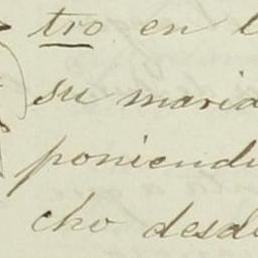 tro en l
su marid
poniendo
cho desde